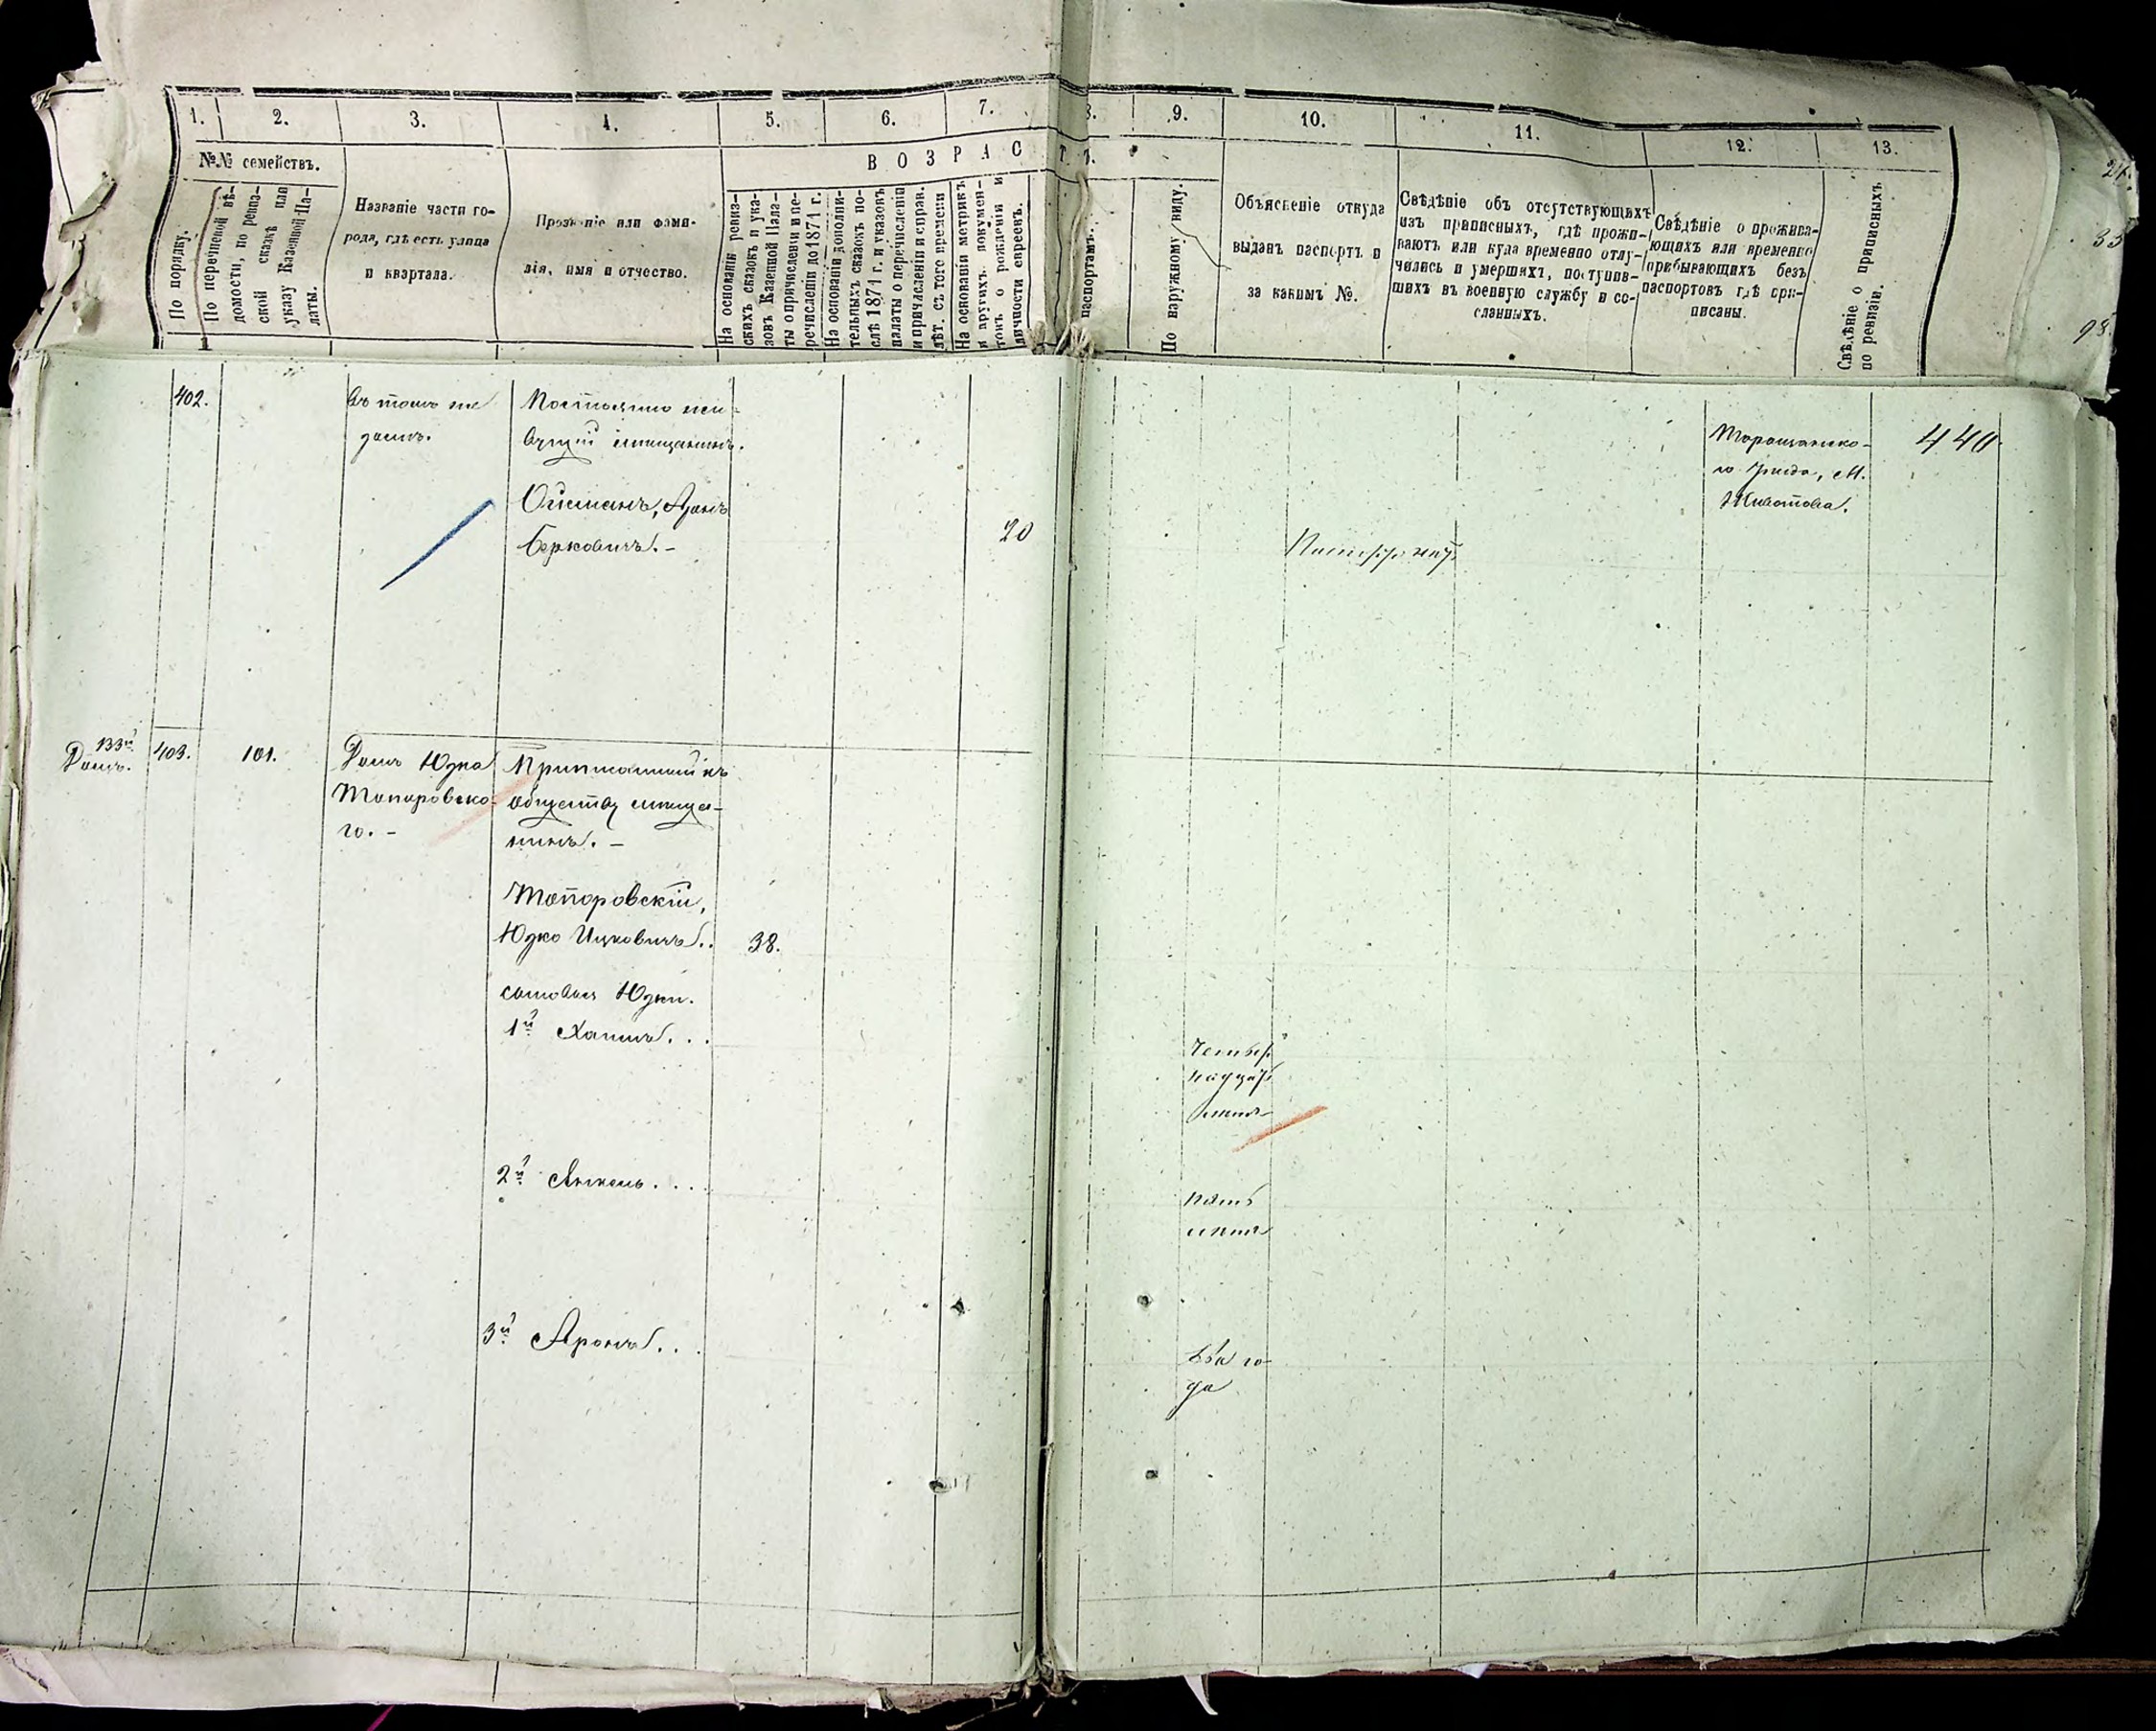 1.
2.
3.
4.
5.
6.
7.
8.
9.
10.
11.
12.
13.
№№ семействъ.
ВОЗРАСТЪ.
По порядку.
По перечневой вѣ-
домости, по ревиз-
ской сказкѣ или
указу Казенной Па-
латы.
Названіе части го-
рода, гдѣ есть улица
и квартала.
Прозваніе или фами-
лія, имя и отчество.
На основаніи ревиз-
скихъ сказокъ и ука-
зовъ Казенной Пала-
ты о причисленіи и пе-
речисленіи до 1871 г.
На основаніи дополни-
тельныхъ сказокъ по-
слѣ 1871 г. и указовъ
палаты о перечисленіи
и причисленіи и справ.
лѣт. съ того времени
На основаніи метрикъ
и другихъ докумен-
товъ о рожденіи и
личности евреевъ.
паспортамъ.
По наружному виду.
Объясненіе откуда
выданъ паспортъ и
за какимъ №.
Свѣдѣніе объ отсутствующихъ
изъ приписныхъ, гдѣ прожи-
ваютъ или куда временно отлу-
чились и умершихъ, поступив-
шихъ въ военную службу и со-
сланныхъ.
Свѣдѣніе о прожива-
ющихъ или временно
прибывающихъ безъ
паспортовъ гдѣ при-
писаны.
Свѣдѣніе о приписныхъ
по ревизіи.
402.
Въ томъ же
домѣ.
Постоянно жи-
вущій мѣщанинъ.
Ойсманъ,
Берковичъ. -
20
Таращанско-
го уѣзда, М.
Животова.
440
133й
Домъ.
403.
101.
Домъ Юдка
Топоровско-
го. -
Приписанный къ
обществу мѣща-
нинъ. -
Топоровскій,
Юдко Ицковичъ..
38.
сыновья Юдки.
1й Хаимъ...
Четыр-
надцать
лѣтъ
2й Анкель....
пять
лѣтъ
3й Аронъ...
два го-
да